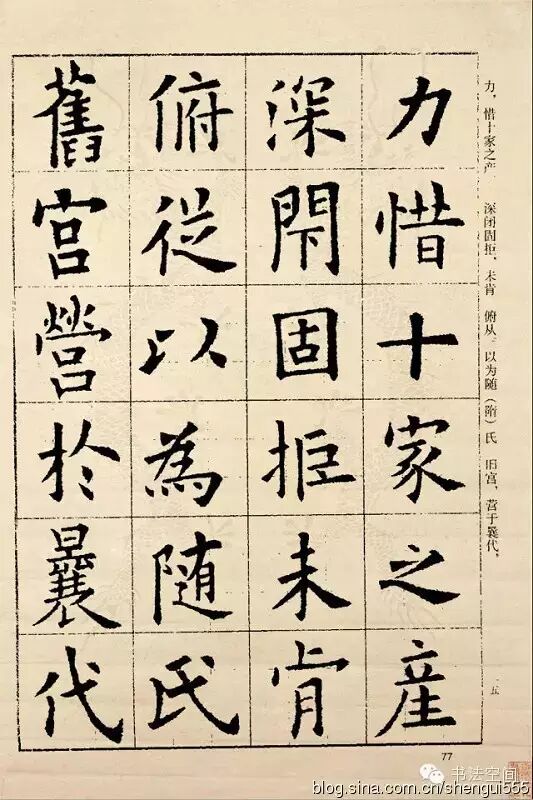 力惜十家之産
深閇固拒未肯
俯從以為随氏
舊宫營於曩代
力，惜十家之产 深闭固拒，未肯 俯从。以为随（隋）氏 旧宫，营于曩代，
五
77
书法空间
blog.sina.com.cn/shengui555